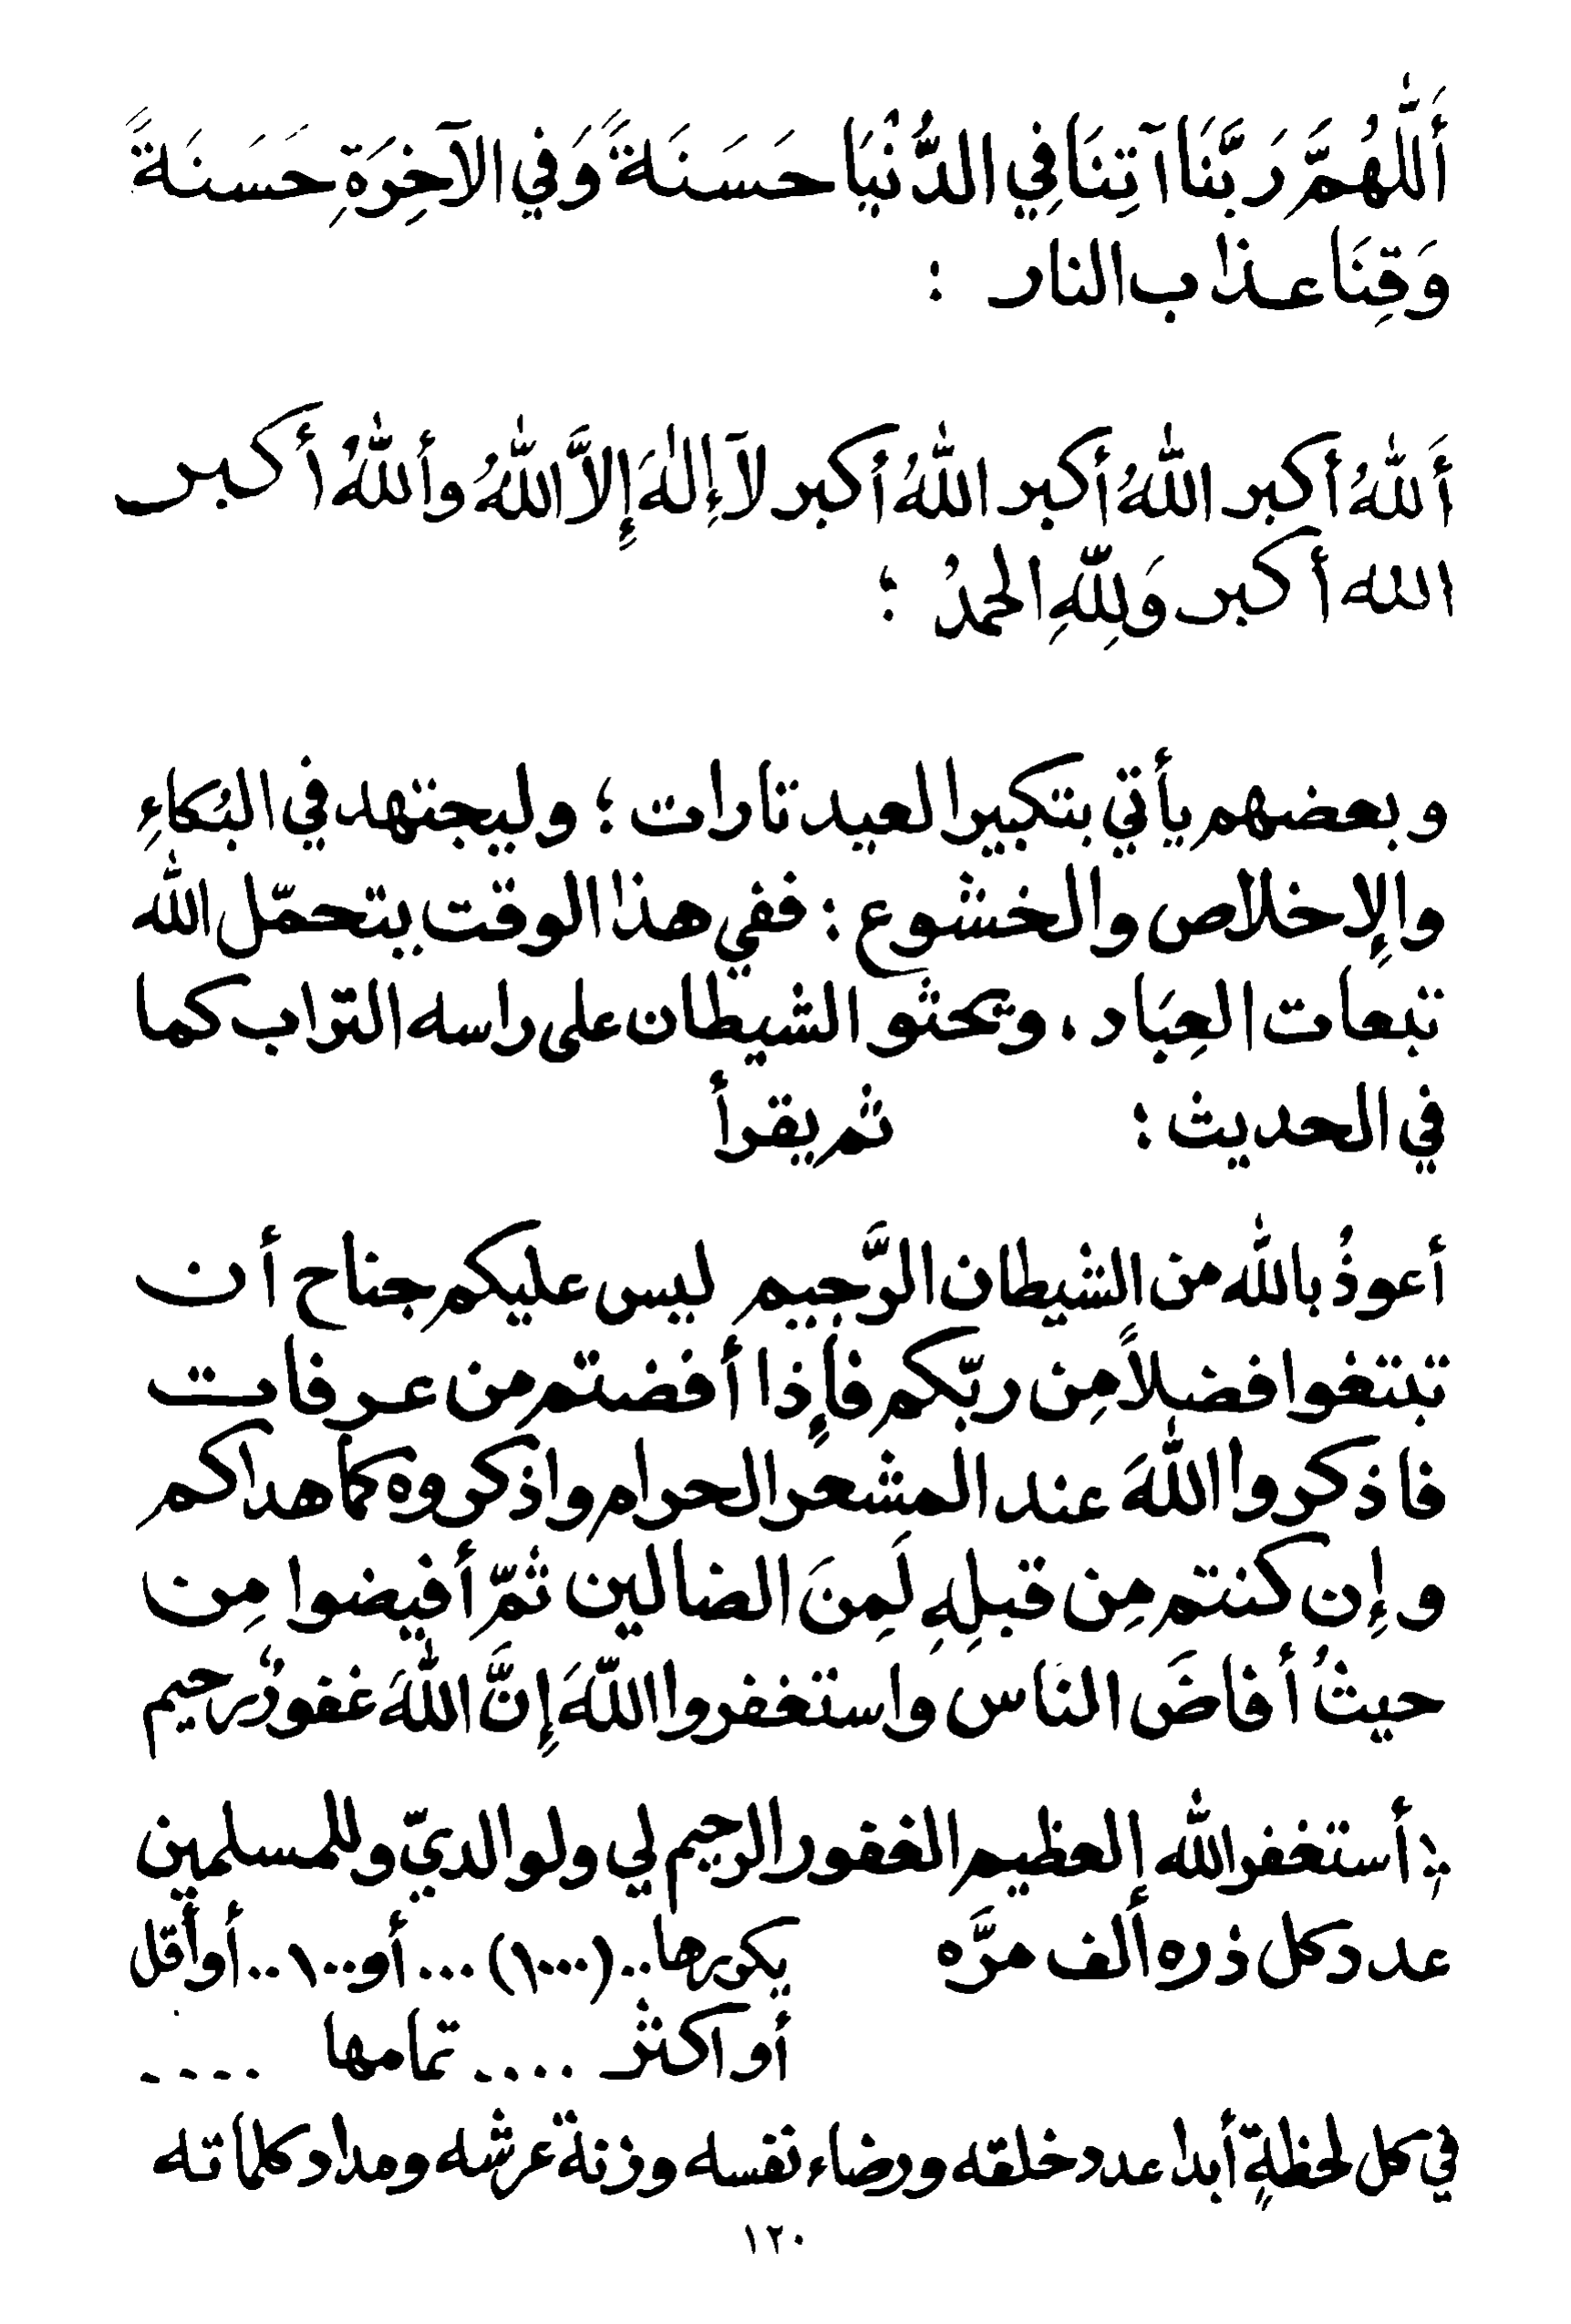 أَللّٰهُمَّ رَبَّنَا آتِنَا فِي الدُّنْيَا حَسَنَةً وَفِي الآخِرَةِ حَسَنَةً
وَقِنَا عذاب النار :
أَللّٰهُ أكبر اللّٰهُ أكبر اللّٰهُ أكبر لآ إِلٰهَ إِلاَّ اللّٰهُ وأللّٰهُ أكبر
الله أكبر وَلِلّٰهِ الحمدُ ؛
وبعضهم يأتي بتكبير العيد تارات ؛ وليجتهد في البُكاءِ
والإخلاص والخشوع : ففي هذا الوقت يتحمّل اللّٰه
تبعات العِبَاد ، ويحثو الشيطان على راسه التراب كما
في الحديث : ثم يقرأ
أعوذُ باللّٰه من الشيطان الرَّجيم ليس عليكم جناح أن
تبتغوا فضلاً مِن ربّكم فإذا أفضتم مِن عرفات
فاذكروا اللّٰهَ عند المشعر الحرام واذكروه كما هداكم
وإن كنتم مِن قبلِهِ لَمِنَ الضالين ثمّ أفيضوا مِن
حيثُ أفاضَ الناس واستغفروا اللّٰهَ إِنَّ اللّٰهَ غفورٌ رحيم
أستغفر اللّٰه العظيم الغفور الرحيم لي ولوالديّ وللمسلمين
عدد كل ذره ألف مرَّه يكررها..(١٠٠٠) ... أو ١٠٠.. أو أقل
أو اكثر .... تمامها ....
في كل لحظةٍ أبدا عدد خلقه ورضاء نفسه وزنة عرشه ومداد كلماته
١٢٠